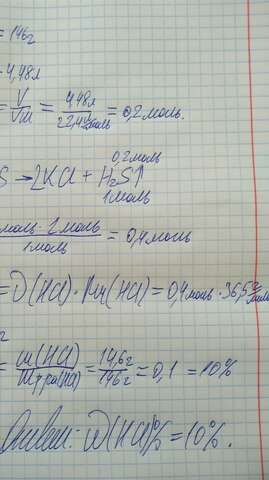 = 146г
- 4,48л
= V/Vm = 4,48л/22,4л/моль = 0,2 моль.
0,2 моль
S → 2KCl + H₂S↑
1 моль
моль · 2 моль/1 моль = 0,4 моль
= ν(HCl) · M(HCl) = 0,4 моль · 36,5 г/моль
г
= m(HCl)/mр-ра(HCl) = 14,6г/146г = 0,1 = 10%
Ответ: ω(HCl)% = 10%.